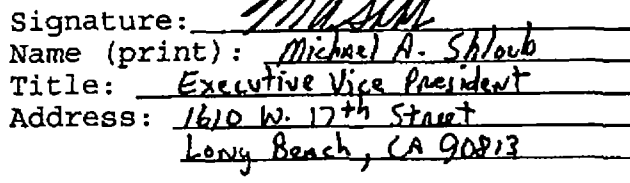 Signature:
Name (print): Michael A. Shloub
Title: Executive Vice President
Address: 1610 W. 17th Street
Long Beach, CA 90813